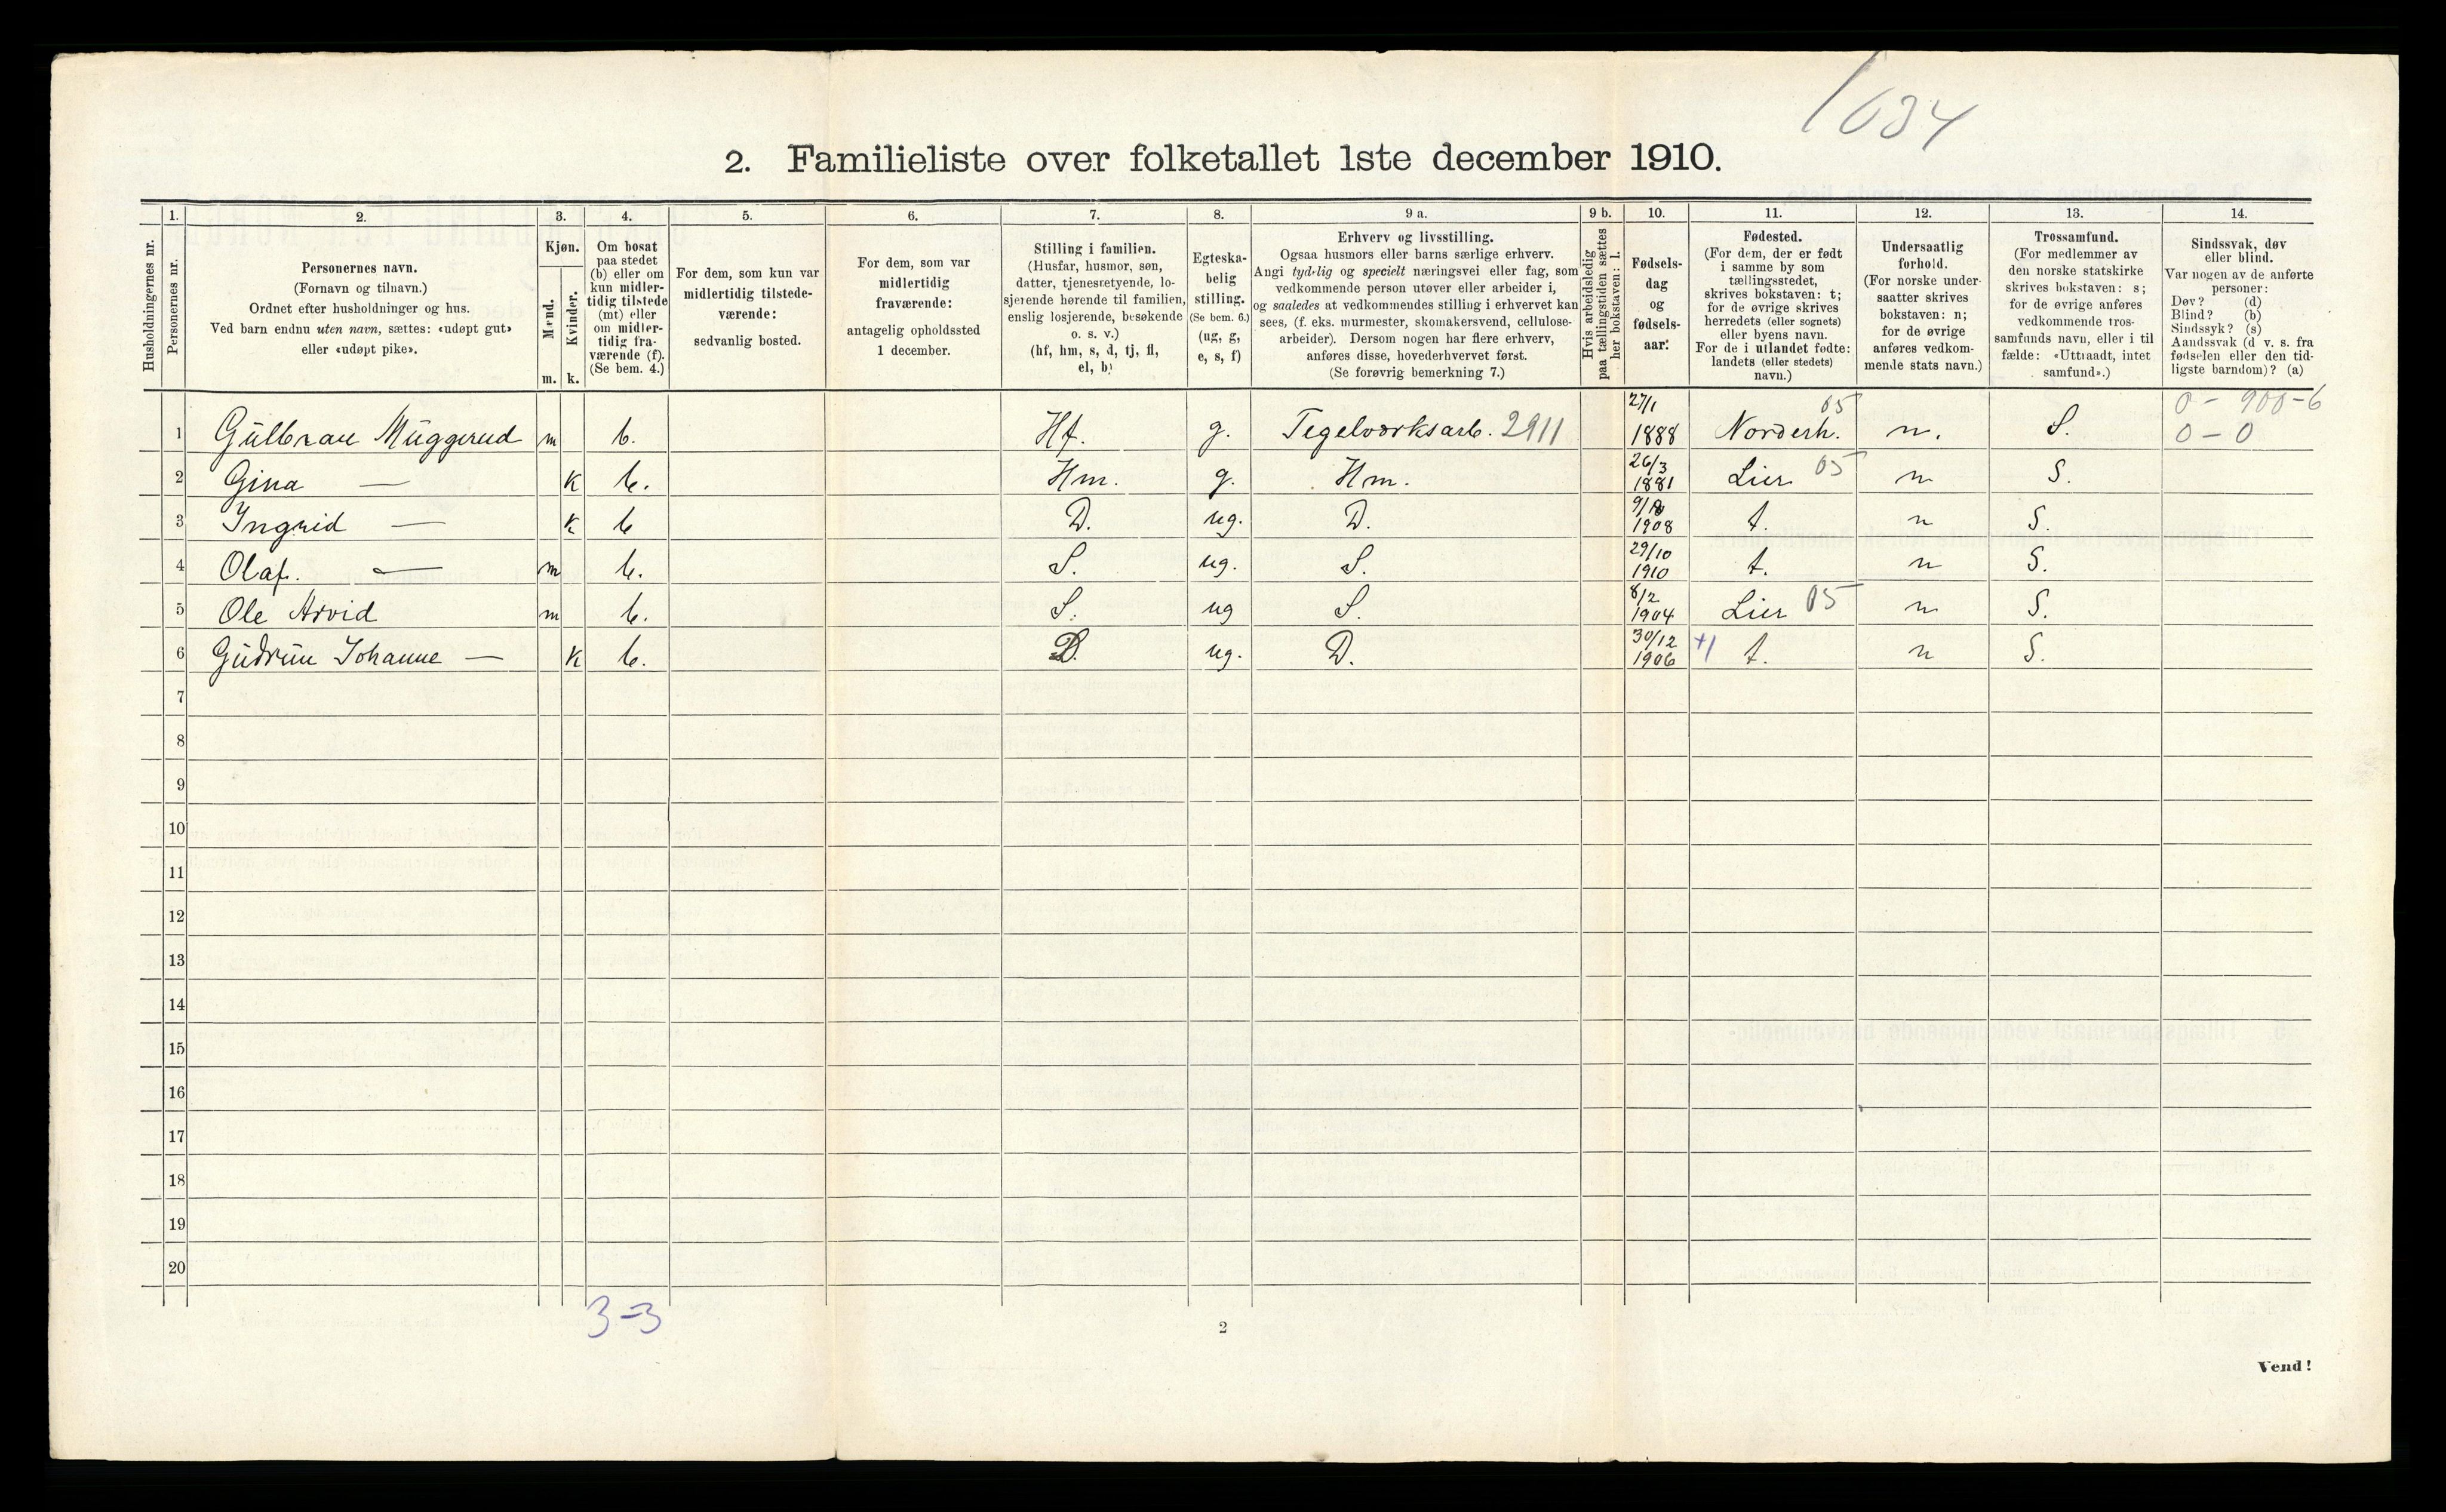 1634
2. Familieliste over folketallet 1ste december 1910.
Husholdningernes nr.
1. Personernes nr.
2. Personernes navn.
(Fornavn og tilnavn.)
Ordnet efter husholdninger og hus.
Ved barn endnu uten navn, sættes: «udøpt gut»
eller «udøpt pike».
3. Kjøn.
Mænd. m.
Kvinder. k.
4. Om bosat
paa stedet
(b) eller om
kun midler-
tidig tilstede
(mt) eller
om midler-
tidig fra-
værende (f).
(Se bem. 4.)
5. For dem, som kun var
midlertidig tilstede-
værende:
sedvanlig bosted.
6. For dem, som var
midlertidig
fraværende:
antagelig opholdssted
1 december.
7. Stilling i familien.
(Husfar, husmor, søn,
datter, tjenestetyende, lo-
sjerende hørende til familien,
enslig losjerende, besøkende
o. s. v.)
(hf, hm, s, d, tj, fl,
el, b)
8. Egteska-
belig
stilling.
(Se bem. 6.)
(ug, g,
e, s, f)
9 a. Erhverv og livsstilling.
Ogsaa husmors eller barns særlige erhverv.
Angi tydelig og specielt næringsvei eller fag, som
vedkommende person utøver eller arbeider i,
og saaledes at vedkommendes stilling i erhvervet kan
sees, (f. eks. murmester, skomakersvend, cellulose-
arbeider). Dersom nogen har flere erhverv,
anføres disse, hovederhvervet først.
(Se forøvrig bemerkning 7.)
9 b. Hvis arbeidsledig
paa tællingstiden sættes
her bokstaven: l.
10. Fødsels-
dag
og
fødsels-
aar:
11. Fødested.
(For dem, der er født
i samme by som
tællingsstedet,
skrives bokstaven: t;
for de øvrige skrives
herredets (eller sognets)
eller byens navn.
For de i utlandet fødte:
landets (eller stedets)
navn.)
12. Undersaatlig
forhold.
(For norske under-
saatter skrives
bokstaven: n;
for de øvrige
anføres vedkom-
mende stats navn.)
13. Trossamfund.
(For medlemmer av
den norske statskirke
skrives bokstaven: s;
for de øvrige anføres
vedkommende tros-
samfunds navn, eller i til
fælde: «Uttraadt, intet
samfund».)
14. Sindssvak, døv
eller blind.
Var nogen av de anførte
personer:
Døv? (d)
Blind? (b)
Sindssyk? (s)
Aandssvak (d v. s. fra
fødselen eller den tid-
ligste barndom)? (a)
27/1 05 0 - 900-6
1 Gulbran Muggerud m b. Hf. g. Tegelværksarb. 2911 1888 Norderh. n. S. 0 - 0
26/3
2 Gina — k b. Hm. g. Hm. 1881 Lier 05 n S.
3 Ingrid — k b D. ug. D. 1908 t. n S.
29/10
4 Olaf. — m b. S. ug. S. 1910 t. n S.
8/2
5 Ole Arvid m b. S. ug S. 1904 Lier 05 n S.
30/12
6 Gudrun Johanne — k b. D. ug. D. 1906 +1 t. n S.
7
8
9
10
11
12
13
14
15
16
17
18
19
20
3-3
2
Vend!